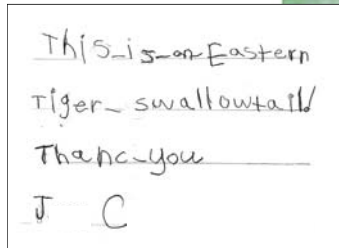 This is an Eastern
Tiger swallowtail!
Thanc you
J C